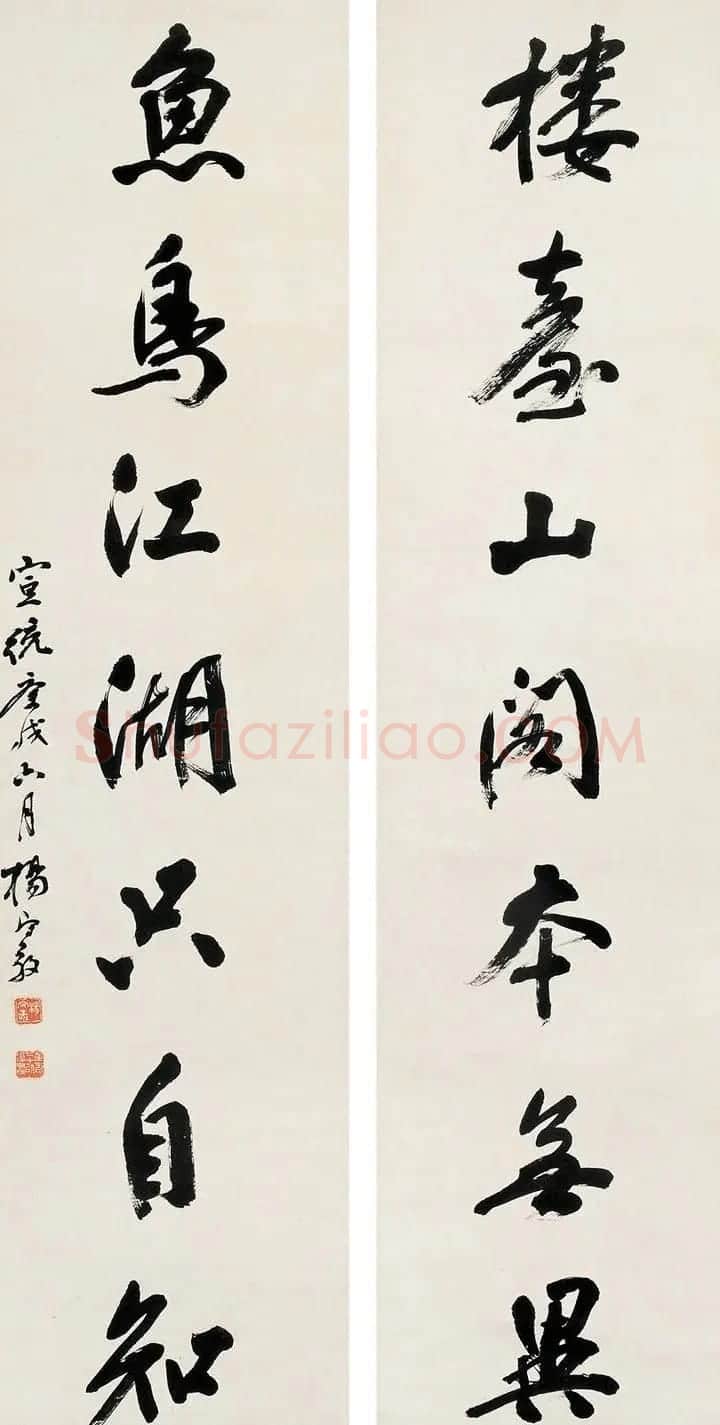 樓臺山閣本無異
魚鳥江湖只自知
宣統庚戌六月楊守敬
Shufaziliao.COM